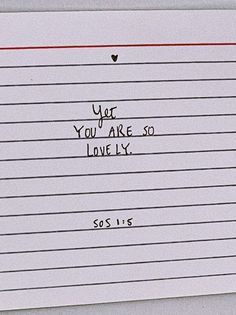 Yet
YOU ARE SO
LOVELY.
SOS 1:5